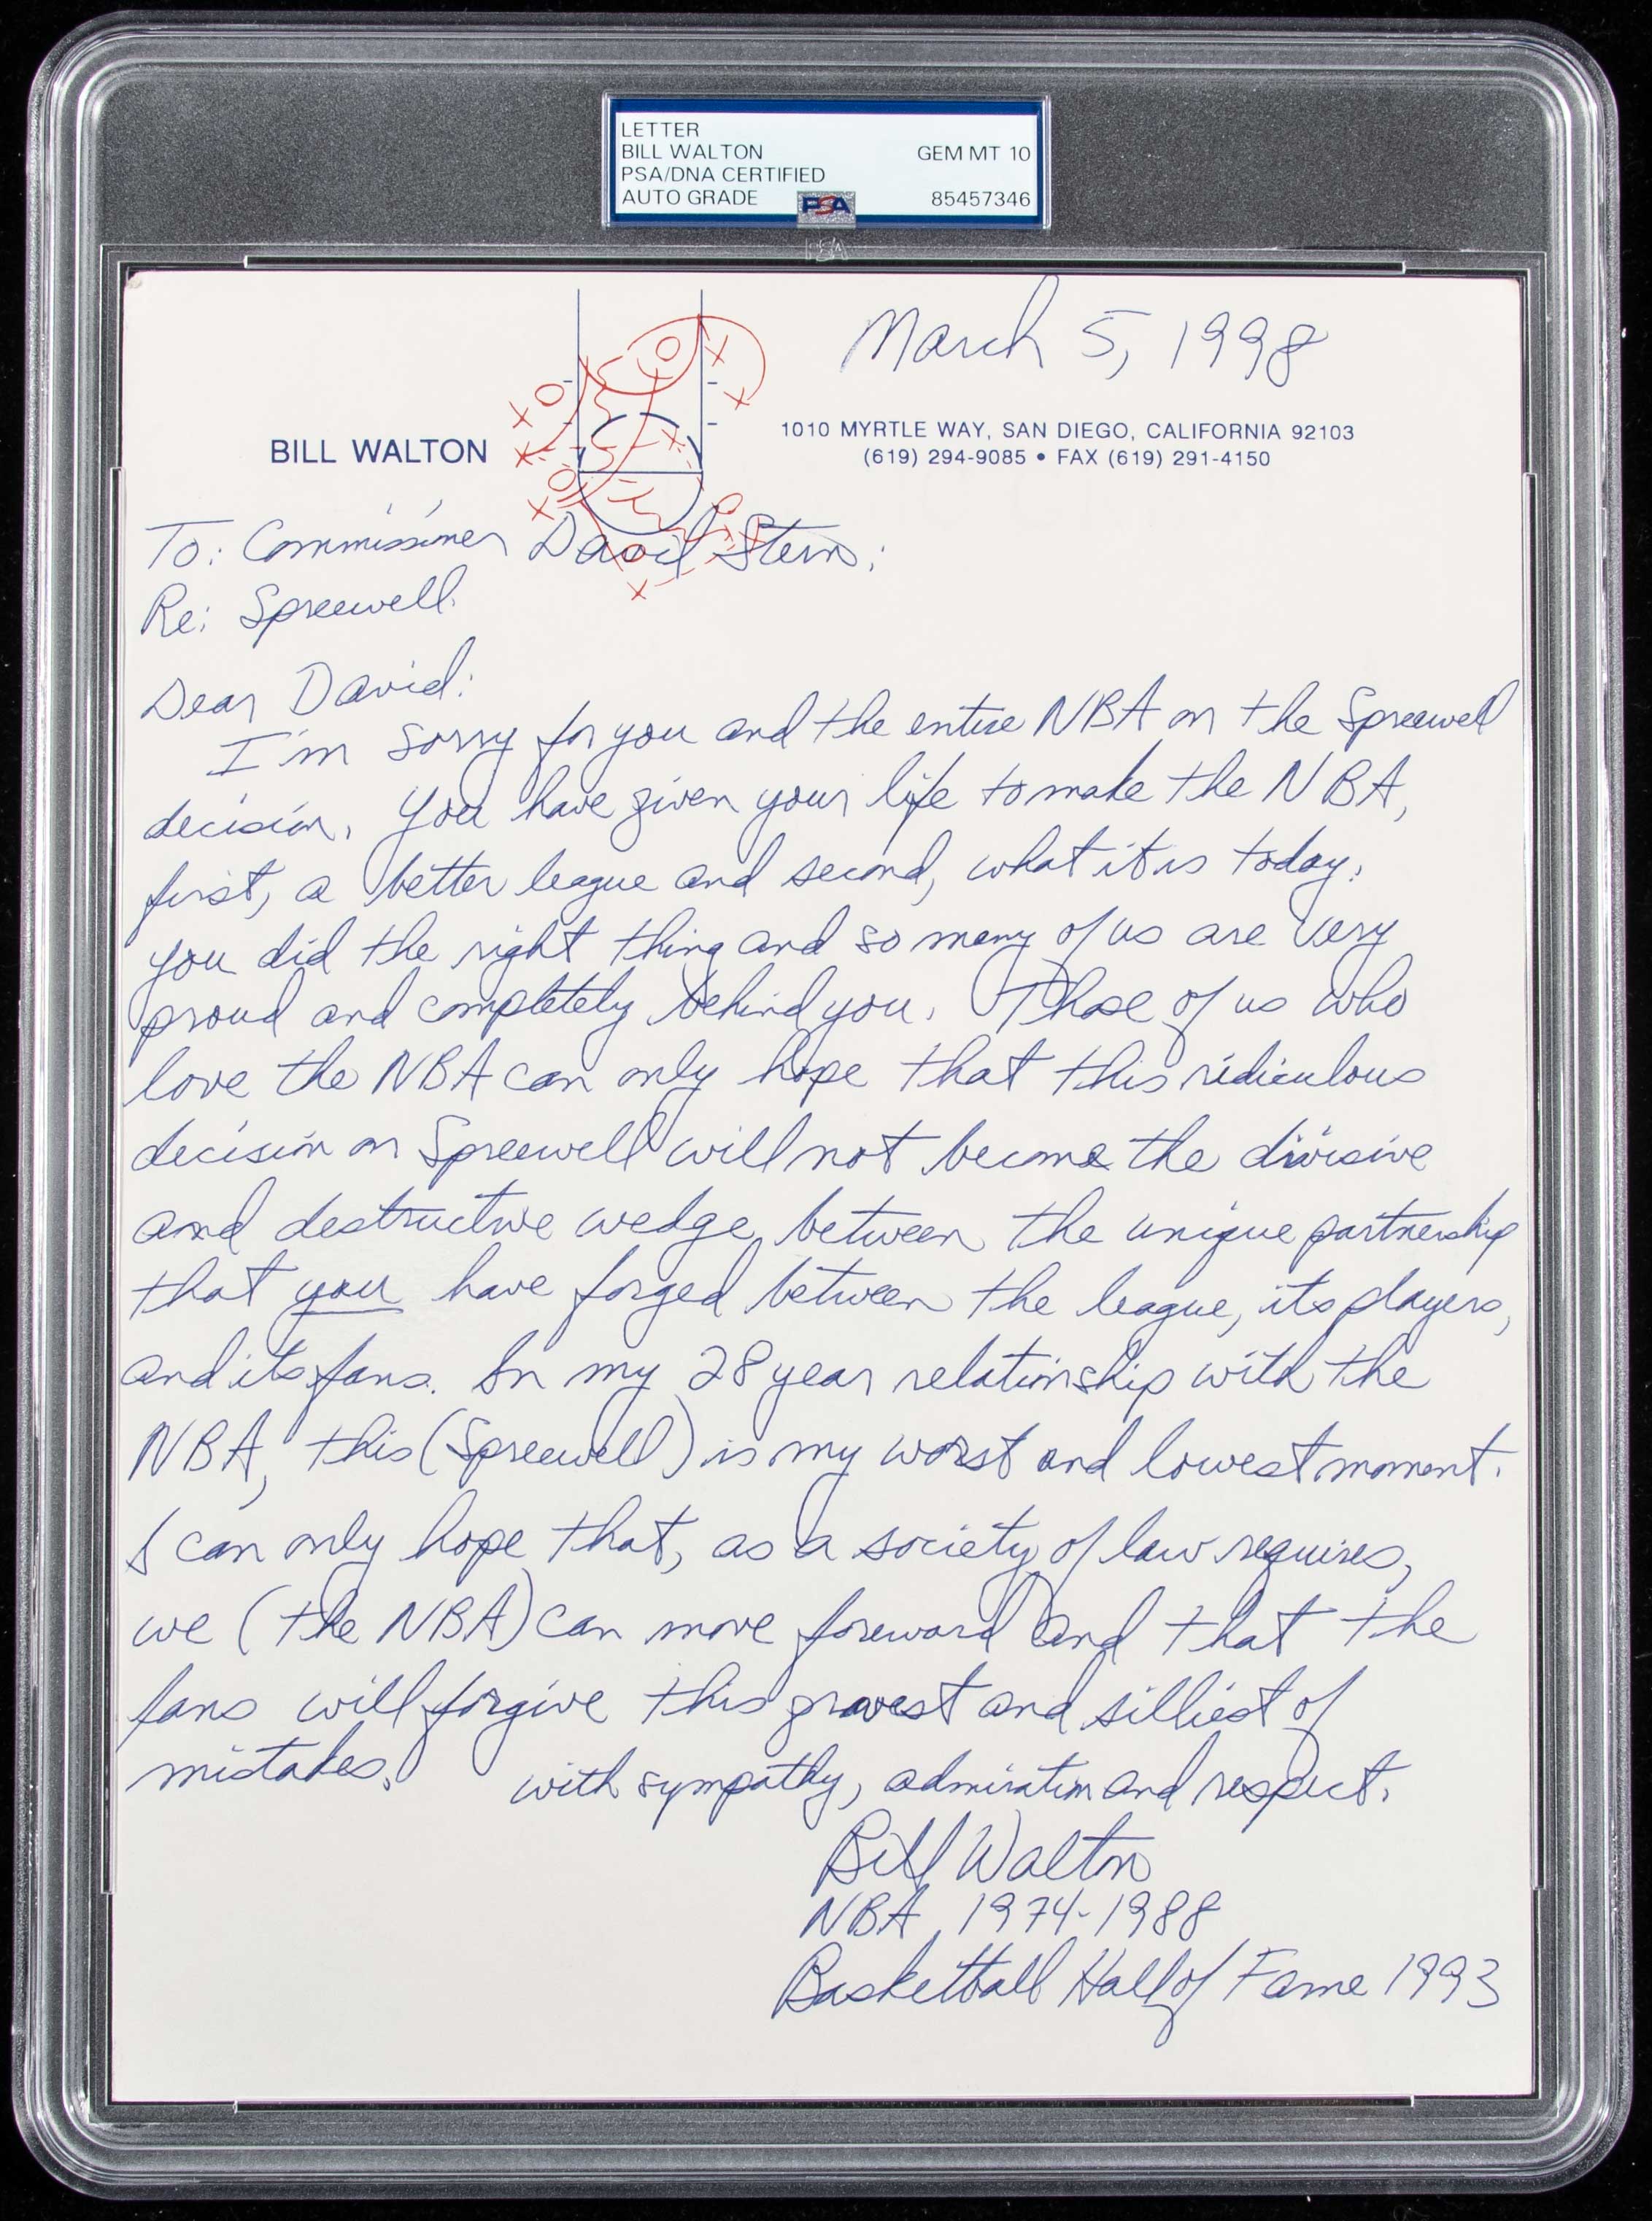 LETTER
BILL WALTON GEM MT 10
PSA/DNA CERTIFIED
AUTO GRADE PSA 85457346
PSA
March 5, 1998
BILL WALTON
1010 MYRTLE WAY, SAN DIEGO, CALIFORNIA 92103
(619) 294-9085 • FAX (619) 291-4150
To: Commissioner David Stern:
Re: Spreewell.
Dear David:
I'm sorry for you and the entire NBA on the Spreewell
decision. You have given your life to make the NBA,
first, a better league and second, what it is today.
you did the right thing and so many of us are very
proud and completely behind you. Those of us who
love the NBA can only hope that this ridiculous
decision on Spreewell will not become the divisive
and destructive wedge between the unique partnership
that you have forged between the league, its players,
and its fans. In my 28 year relationship with the
NBA, this (Spreewell) is my worst and lowest moment.
I can only hope that, as a society of law requires,
we (the NBA) can move foreward and that the
fans will forgive this gravest and silliest of
mistakes.
with sympathy, admiration and respect.
Bill Walton
NBA 1974-1988
Basketball Hall of Fame 1993